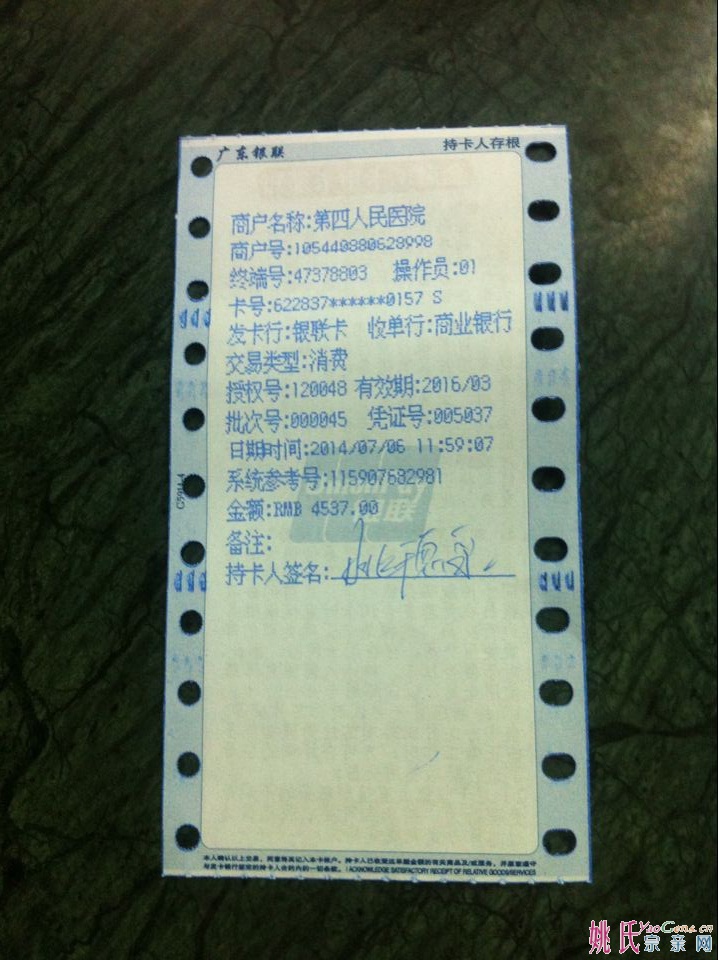 广东银联 持卡人存根
商户名称:第四人民医院
商户号:105440380628998
终端号:47378803 操作员:01
卡号:622837******0157 S
发卡行:银联卡 收单行:商业银行
交易类型:消费
授权号:120048 有效期:2016/03
批次号:000045 凭证号:005037
日期时间:2014/07/06 11:59:07
系统参考号:115907682981
金额:RMB 4537.00
银联
备注:
持卡人签名:
本人确认以上交易，同意将其记入本卡帐户。持卡人已收妥此单据金额的有关商品及/或服务，并愿意遵守
与发卡银行签定的持卡人合约内的一切条款。I ACKNOWLEDGE SATISFACTORY RECEIPT OF RELATIVE GOODS/SERVICES
姚氏宗亲网
YaoGens.cn